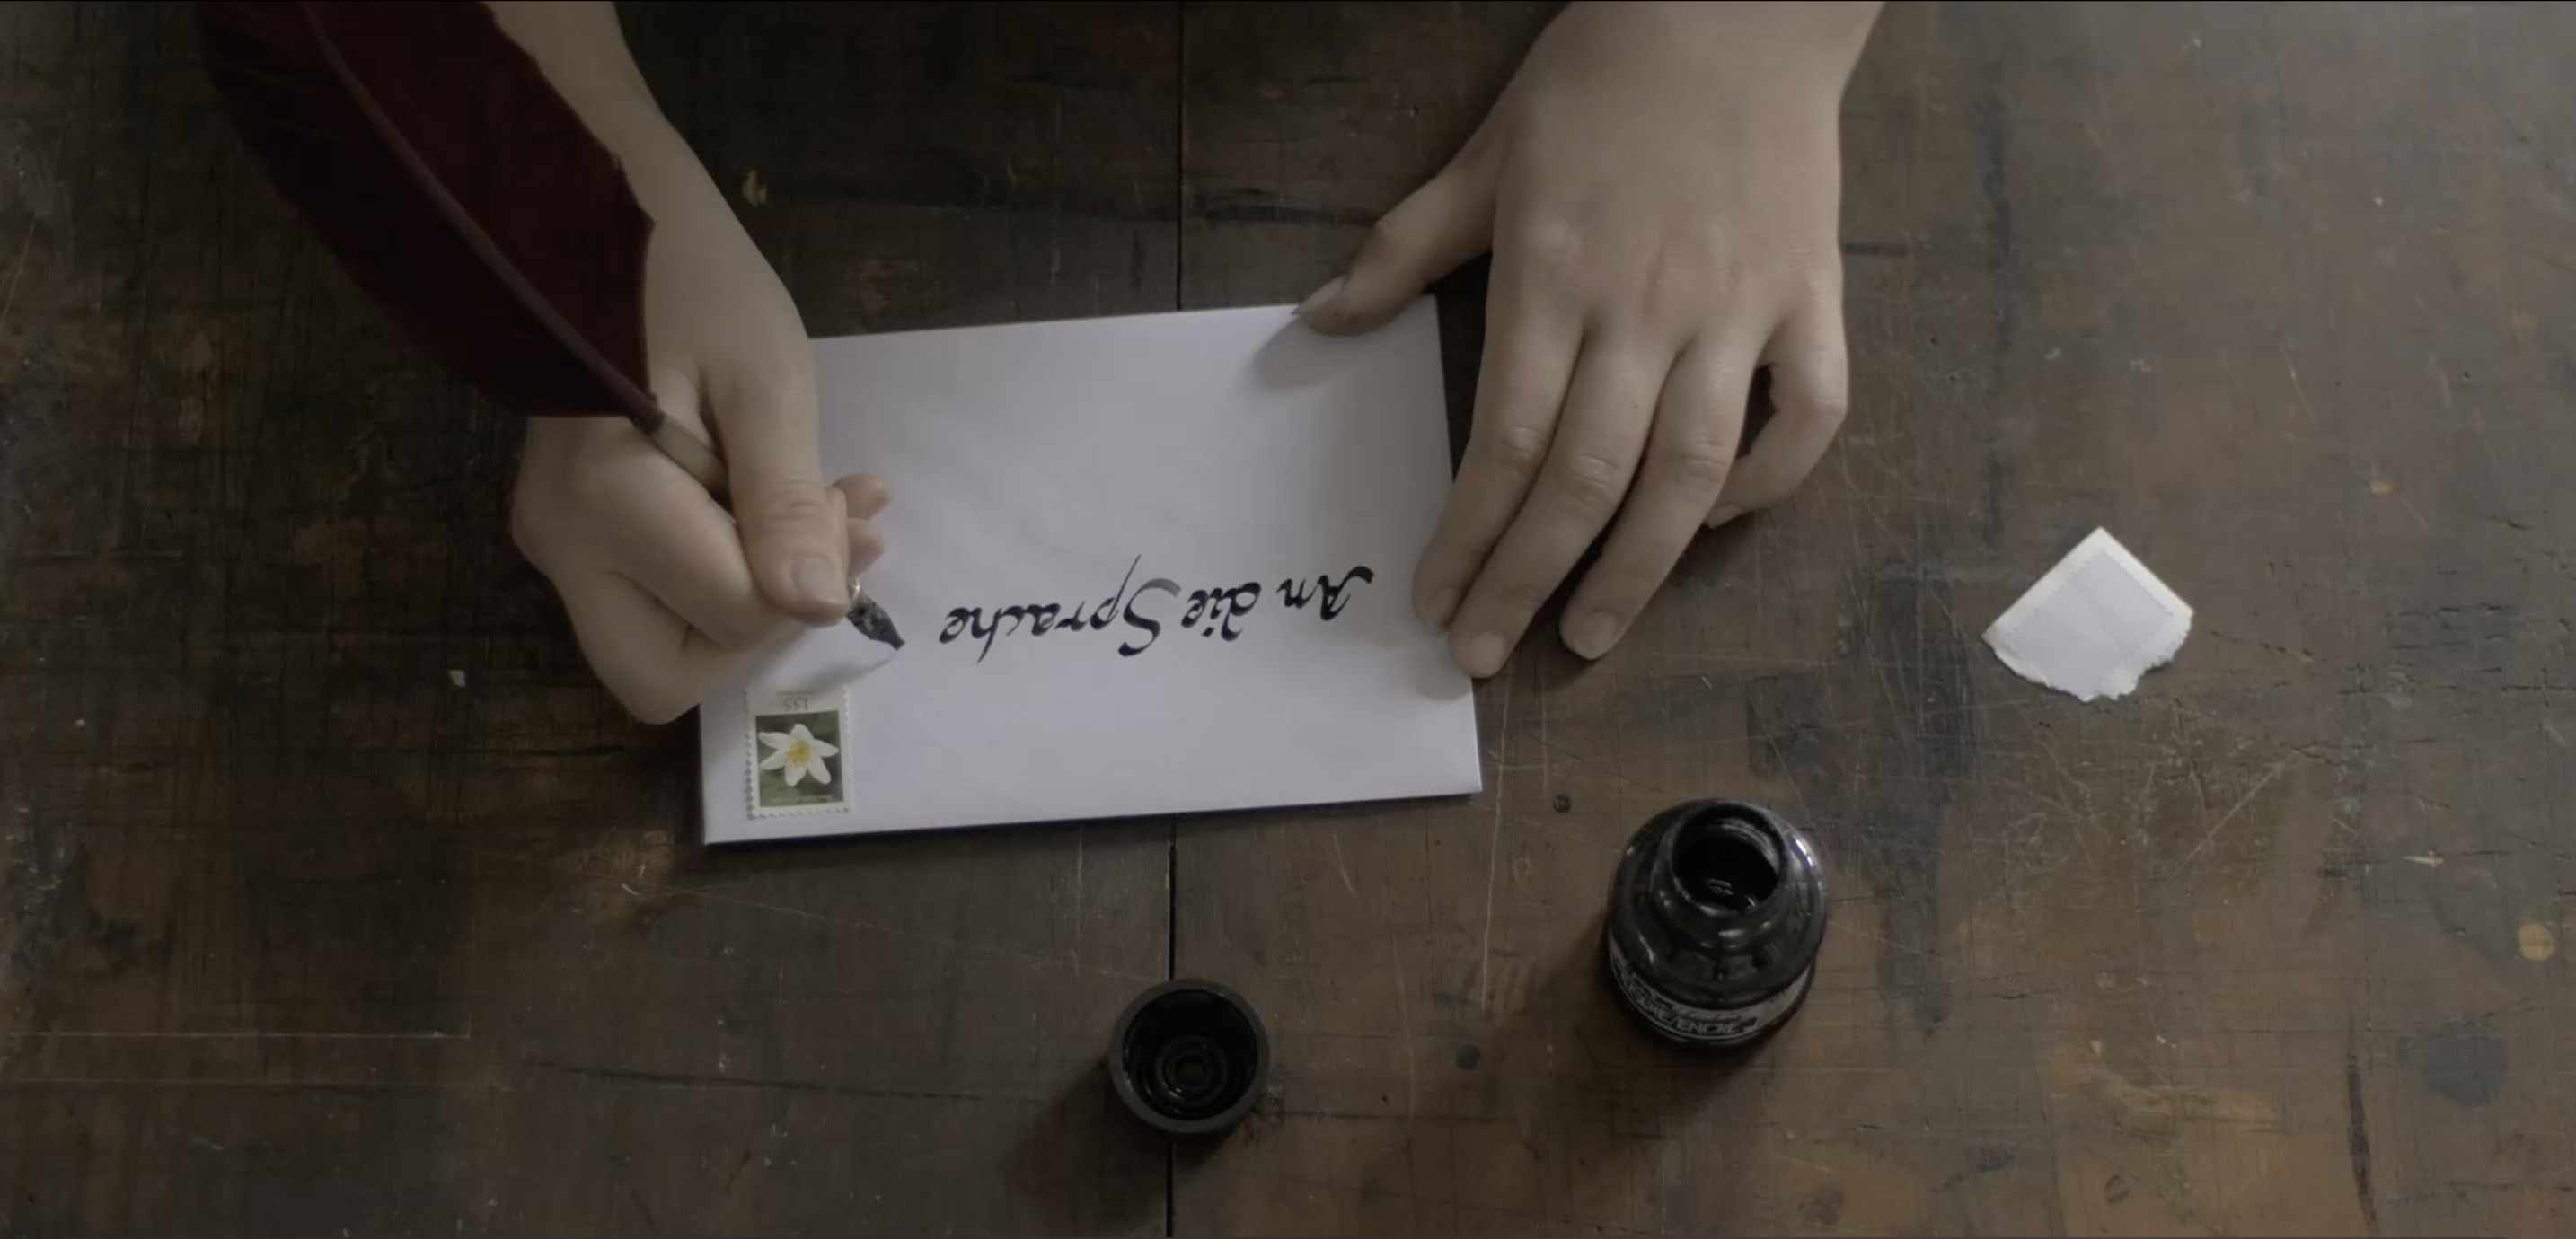 An die Sprache
155
/ENCRE